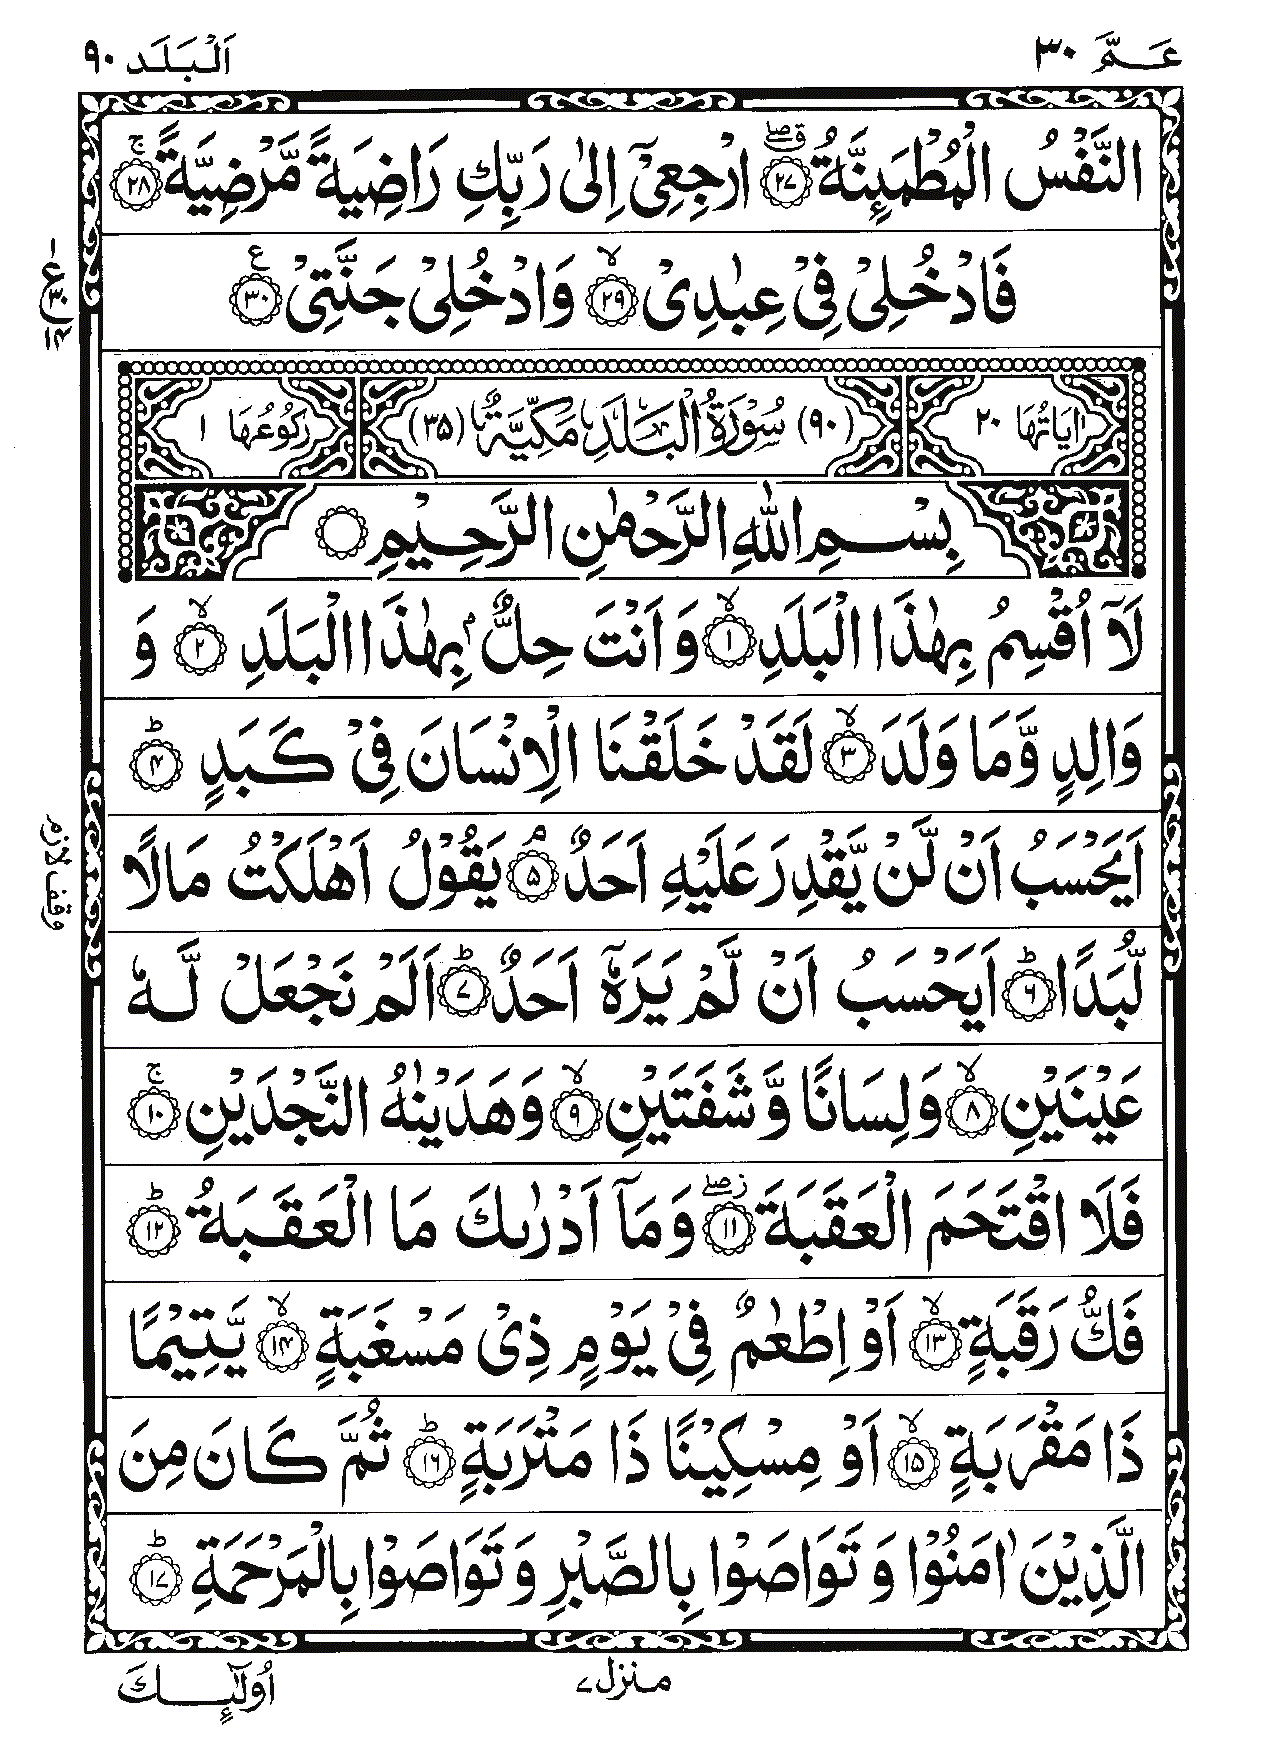 عَمَّ ٣٠
اَلْبَلَد ٩٠
النَّفْسُ الْمُطْمَىِٕنَّةُ ۝٢٧ ارْجِعِیْۤ اِلٰی رَبِّكِ رَاضِیَةً مَّرْضِیَّةً ۝٢٨
فَادْخُلِیْ فِیْ عِبٰدِیْ ۝٢٩ وَادْخُلِیْ جَنَّتِیْ ۝٣٠
اٰیَاتُهَا ٢٠ (٩٠) سُوْرَةُ الْبَلَدِ مَكِّیَّةٌ (٣٥) رَكُوْعُهَا ١
بِسْمِ اللّٰهِ الرَّحْمٰنِ الرَّحِیْمِ
لَاۤ اُقْسِمُ بِهٰذَا الْبَلَدِ ۝١ وَ اَنْتَ حِلٌّۢ بِهٰذَا الْبَلَدِ ۝٢ وَ
وَالِدٍ وَّمَا وَلَدَ ۝٣ لَقَدْ خَلَقْنَا الْاِنْسَانَ فِیْ كَبَدٍ ۝٤
اَیَحْسَبُ اَنْ لَّنْ یَّقْدِرَ عَلَیْهِ اَحَدٌ ۝٥ یَقُوْلُ اَهْلَكْتُ مَالًا
لُّبَدًا ۝٦ اَیَحْسَبُ اَنْ لَّمْ یَرَهٗۤ اَحَدٌ ۝٧ اَلَمْ نَجْعَلْ لَّهٗ
عَیْنَیْنِ ۝٨ وَلِسَانًا وَّ شَفَتَیْنِ ۝٩ وَهَدَیْنٰهُ النَّجْدَیْنِ ۝١٠
فَلَا اقْتَحَمَ الْعَقَبَةَ ۝١١ وَمَاۤ اَدْرٰىكَ مَا الْعَقَبَةُ ۝١٢
فَكُّ رَقَبَةٍ ۝١٣ اَوْ اِطْعٰمٌ فِیْ یَوْمٍ ذِیْ مَسْغَبَةٍ ۝١٤ یَّتِیْمًا
ذَا مَقْرَبَةٍ ۝١٥ اَوْ مِسْكِیْنًا ذَا مَتْرَبَةٍ ۝١٦ ثُمَّ كَانَ مِنَ
الَّذِیْنَ اٰمَنُوْا وَ تَوَاصَوْا بِالصَّبْرِ وَ تَوَاصَوْا بِالْمَرْحَمَةِ ۝١٧
وقف لازم
منزل ٧
اُولٰٓىِٕكَ